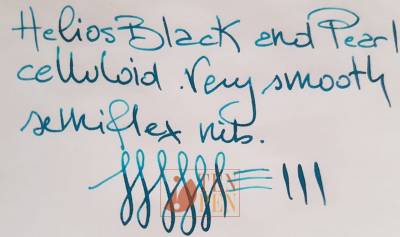 Helios Black and Pearl
celluloid. Very smooth
semiflex nibs.
TEN
PEN